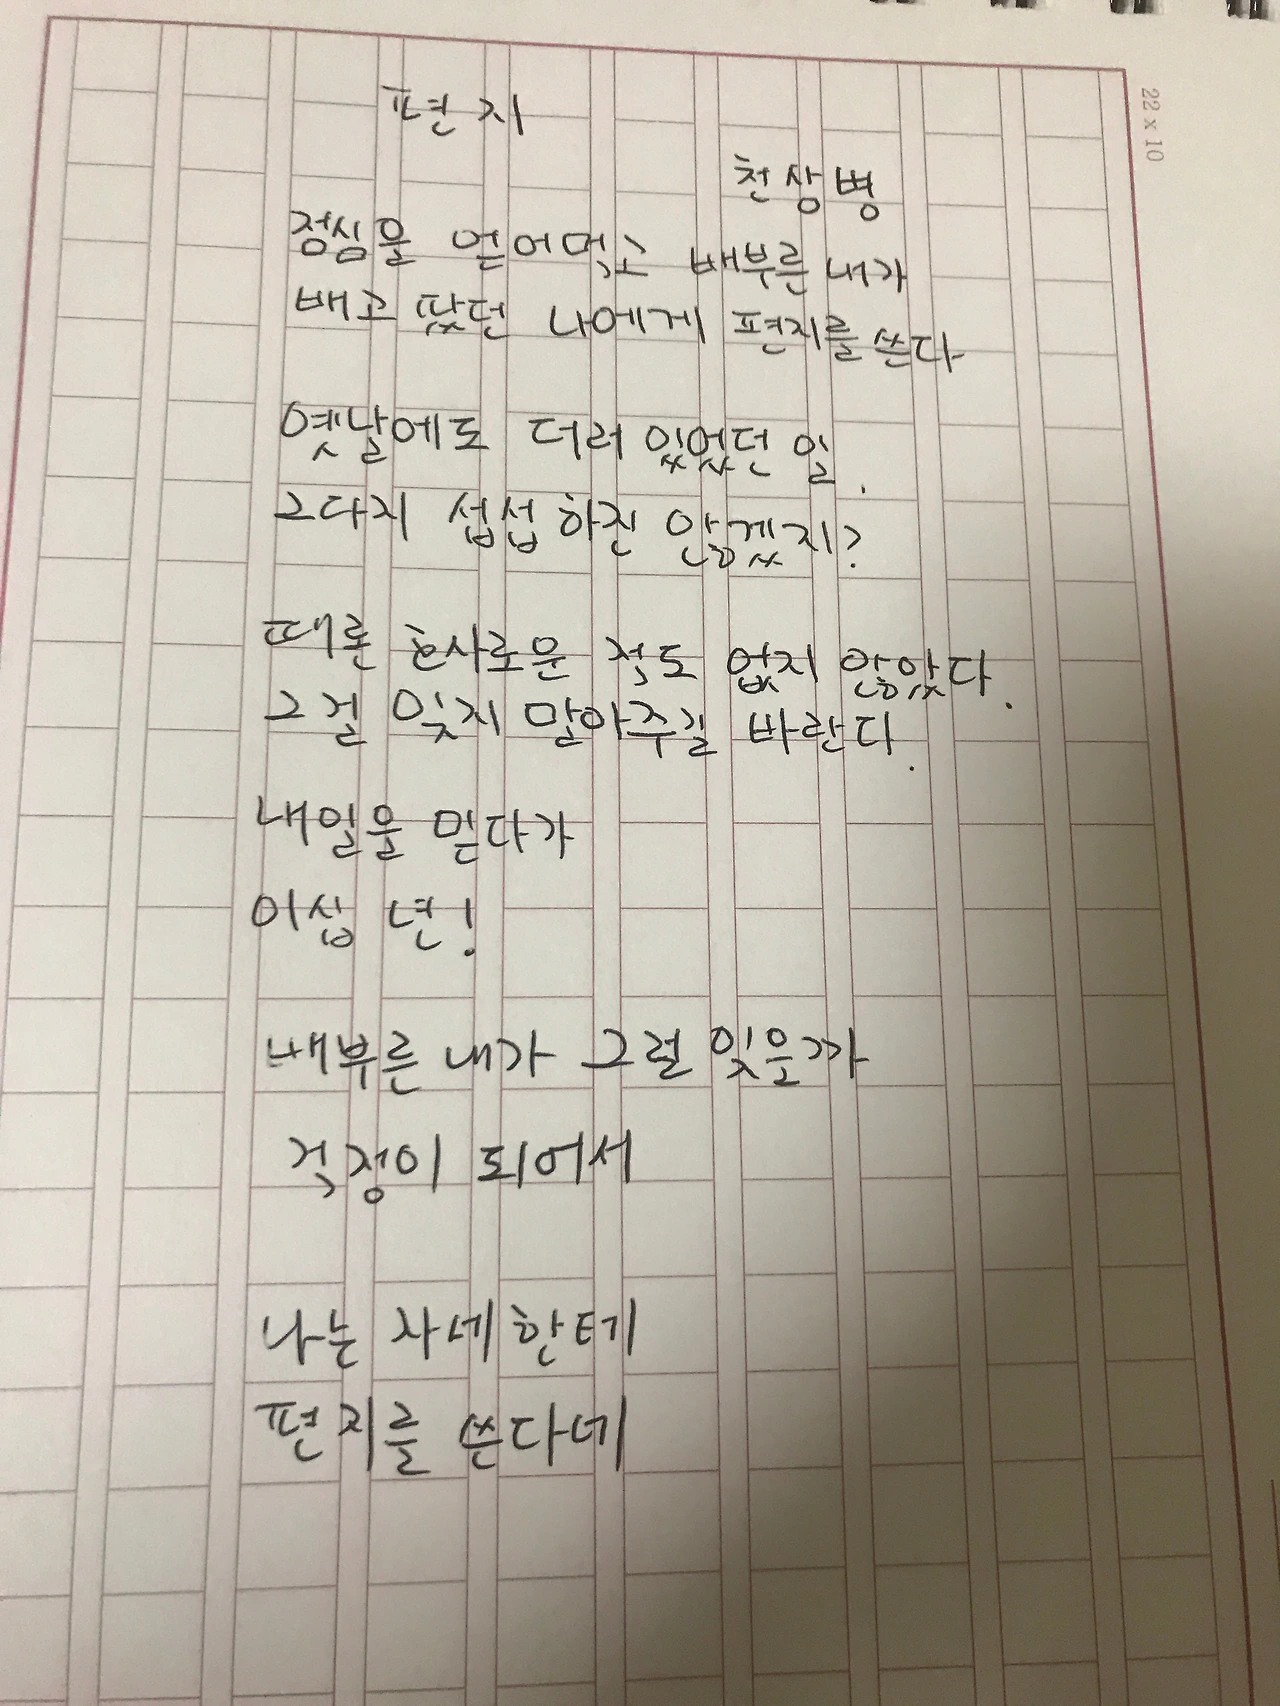 편지
22 x 10
천상병
점심을 얻어먹고 배부른 내가
배고팠던 나에게 편지를 쓴다
옛날에도 더러 있었던 일.
그다지 섭섭하진 않겠지?
때론 호사로운 적도 없지 않았다.
그걸 잊지 말아주길 바란다.
내일을 믿다가
이십 년!
배부른 내가 그걸 잊을까
걱정이 되어서
나는 자네한테
편지를 쓴다네